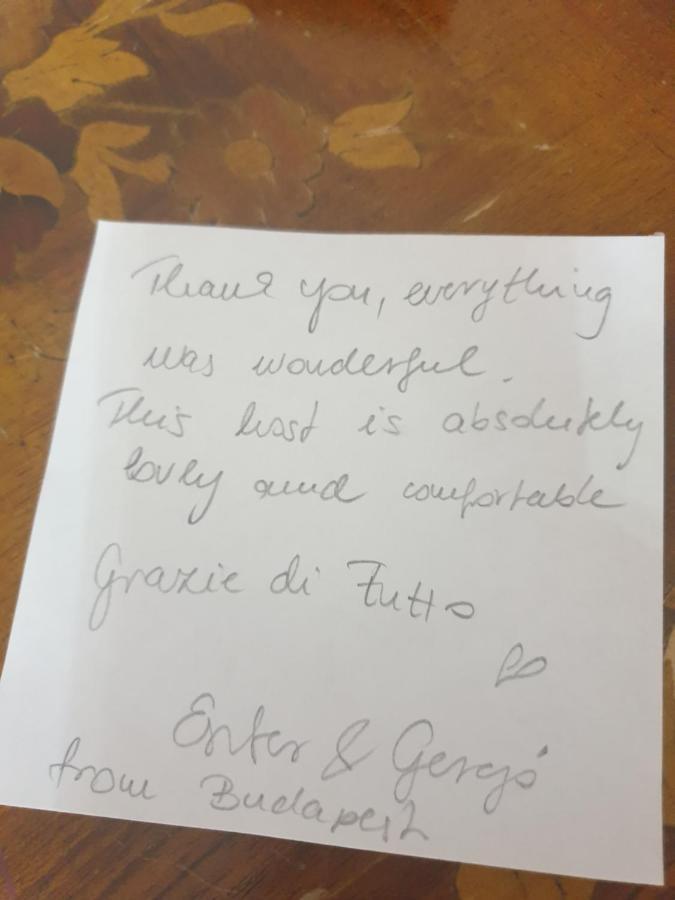 Thank you, everything
was wonderful.
This host is absolutely
lovly and comfortable
Grazie di Tutto
&
from Budapest